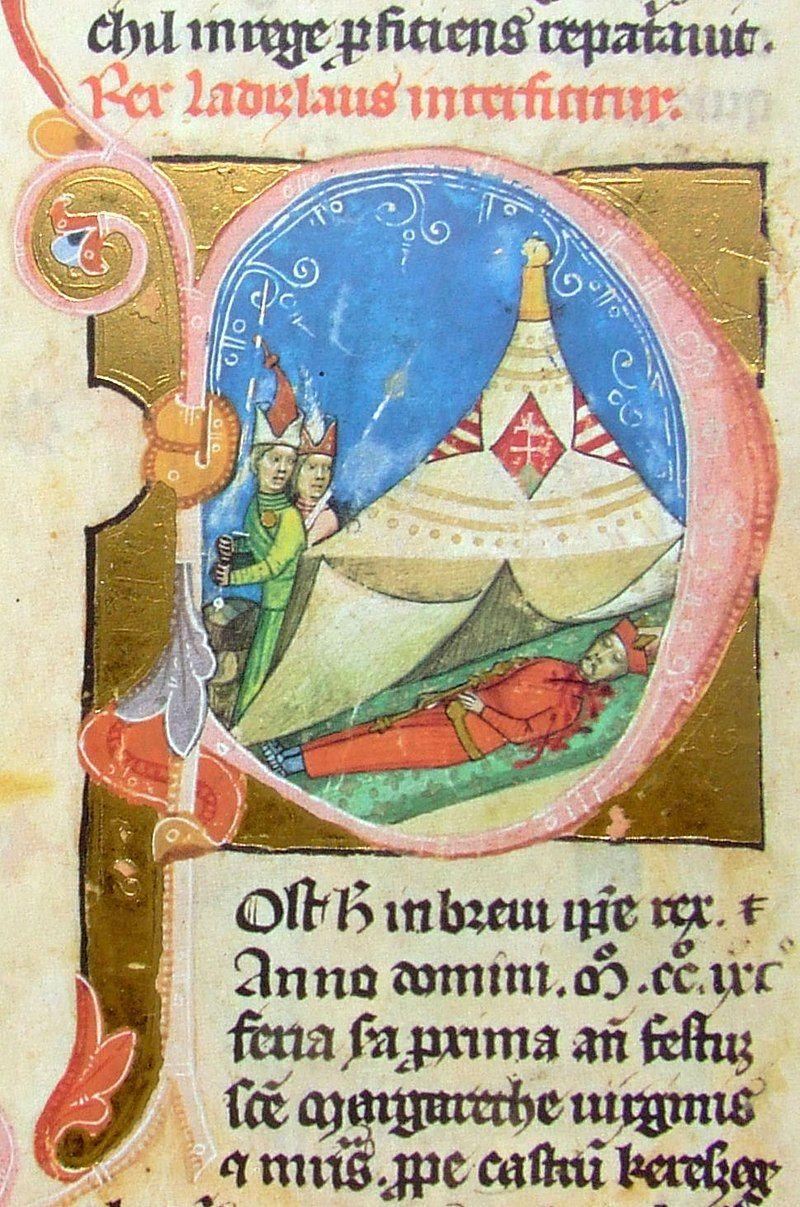 chil in rege p̱ficiens repat̾auit.
Rex ladizlaus interficitur.
Ost h̄ in breui ip̄e rex. ⁊
Anno domini. M̊. cc̊. ixc
feria s̄a p̱xima an̄ festuꝫ
sc̄e Margarethe uirginis
⁊ m̄ris. p̱pe castrū kerezeg